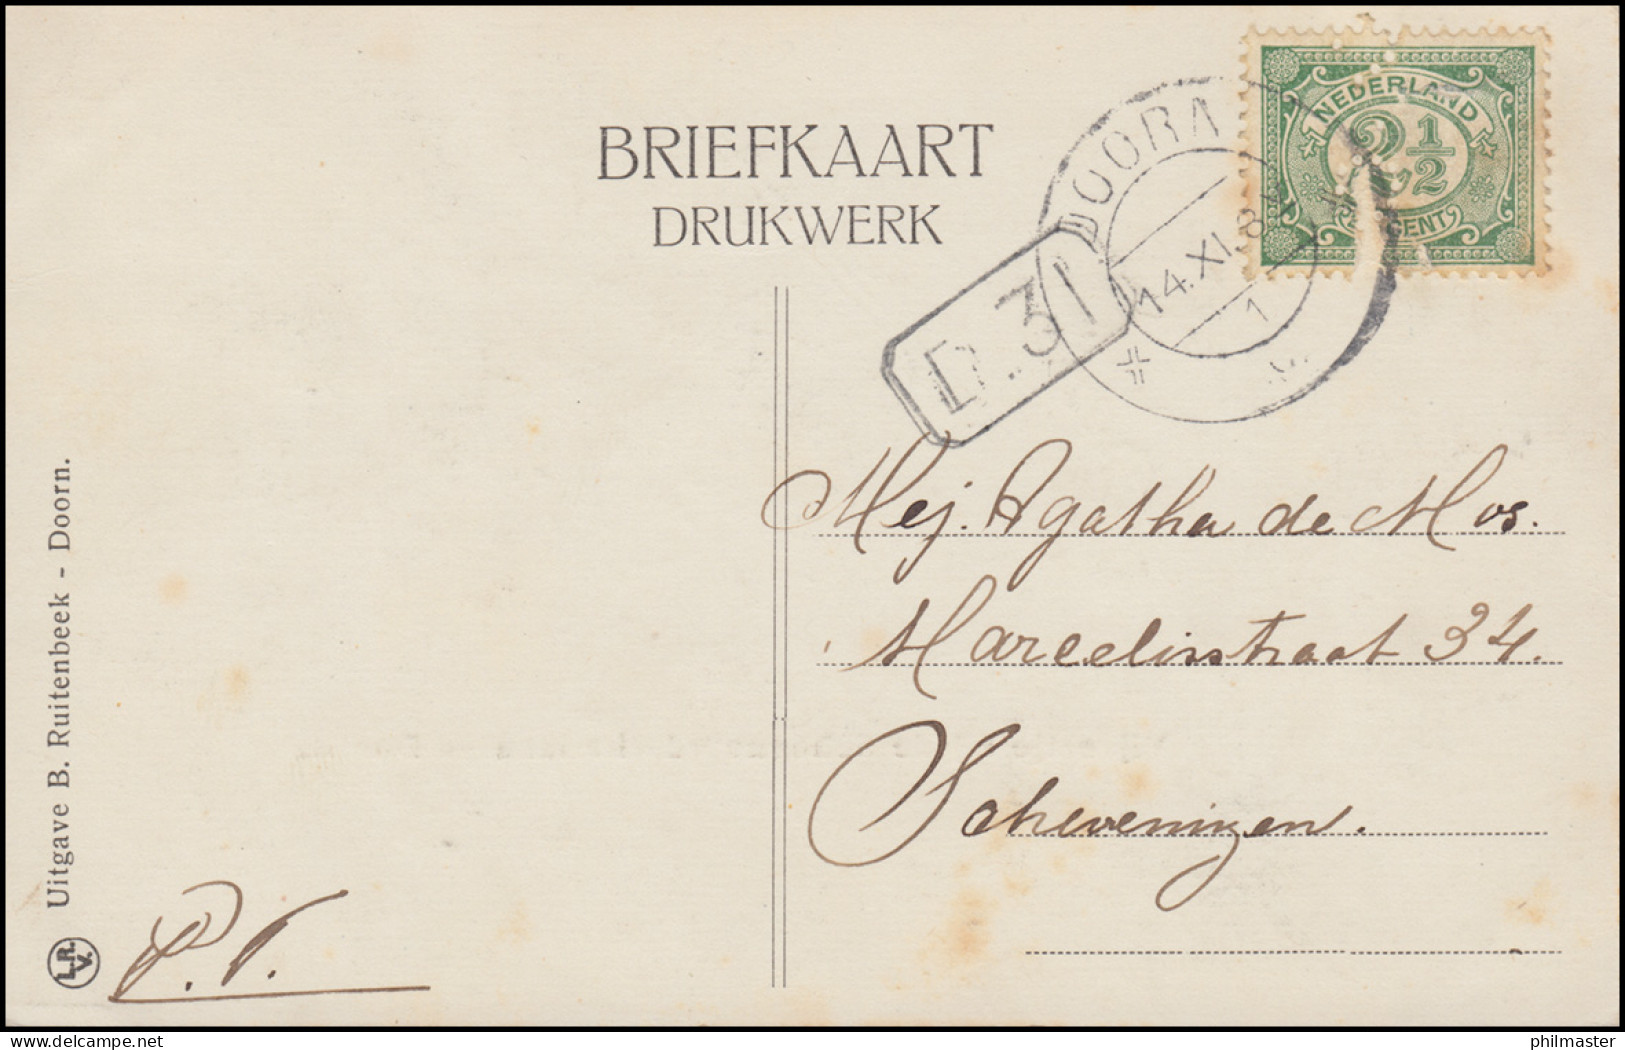 BRIEFKAART
DRUKWERK
NEDERLAND
2½
CENT
DOORN
14.XI.
1
D.31
Mej. Agatha de Mos.
Marcelisstraat 34.
Scheveningen.
Uitgave B. Ruitenbeek - Doorn.
L.R.
V.
P.V.
philmaster